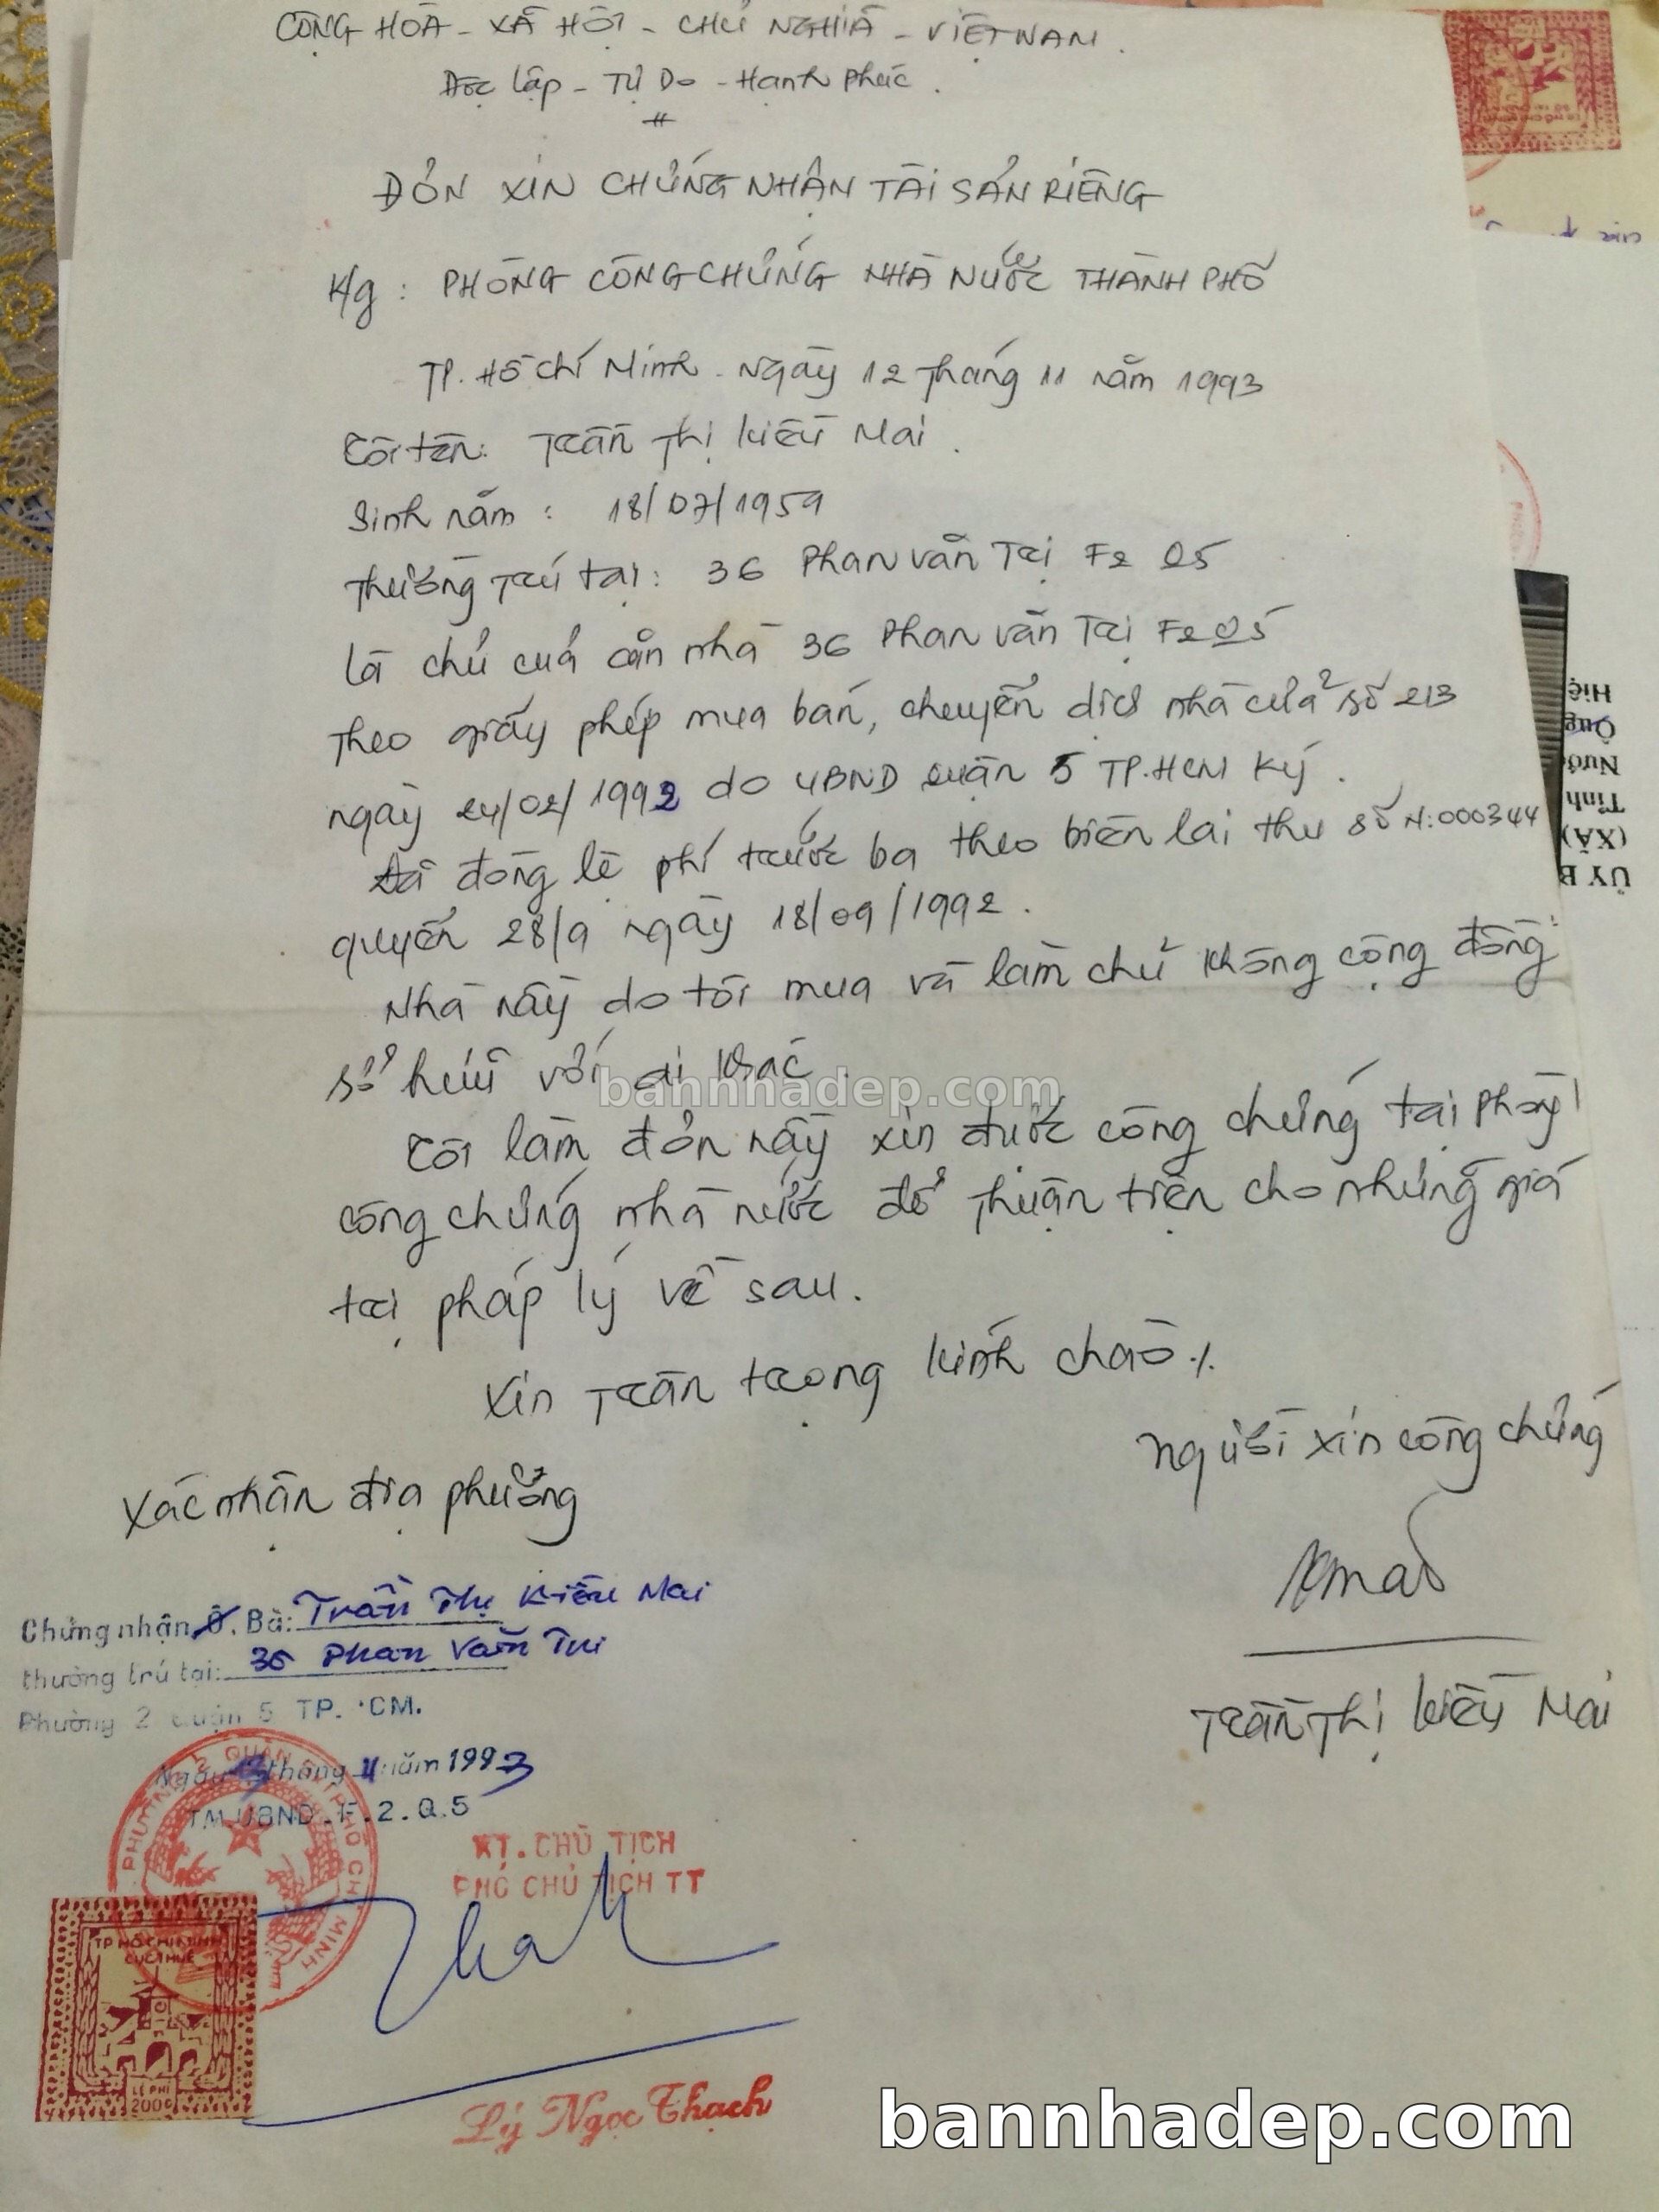 CỘNG HOÀ - XÃ HỘI - CHỦ NGHIÃ - VIỆT NAM.
Độc lập - Tự Do - Hạnh Phúc.
ĐƠN XIN CHỨNG NHẬN TÀI SẢN RIÊNG
K/g: PHÒNG CÔNG CHỨNG NHÀ NƯỚC THÀNH PHỐ
TP. Hồ Chí Minh. Ngày 12 tháng 11 năm 1993
Tôi tên: Trần Thị Kiều Mai.
Sinh năm: 18/07/1959
Thường trú tại: 36 Phan Văn Trị F2 Q5
là chủ cuả căn nhà 36 Phan Văn Trị F2 Q5
theo giấy phép mua bán, chuyển dịch nhà cửa số 213
ngày 24/02/1992 do UBND quận 5 TP.HCM Ký.
Đã đóng lệ phí trước bạ theo biên lai thu số N:000344
quyển 28/9 ngày 18/09/1992.
Nhà nầy do tôi mua và làm chủ không cộng đồng
sở hữu với ai khác.
bannhadep.com
Tôi làm đơn nầy xin được công chứng tại phòng
công chứng nhà nước để thuận tiện cho những giá
trị pháp lý về sau.
Xin trân trọng kính chào./.
Người xin công chứng
Xác nhận địa phương
Trần Thị Kiều Mai
Chứng nhận Ô. Bà: Trần Thị Kiều Mai
thường trú tại: 36 Phan Văn Trị
Phường 2 Quận 5 TP. CM.
Ngày tháng 11 năm 1993
TM.UBND.F.2.Q.5
KT. CHỦ TỊCH
PHÓ CHỦ TỊCH TT
TP HỒ CHÍ MINH
CỤC THUẾ
LỆ PHÍ
200đ
Lý Ngọc Thạch
bannhadep.com
Hiệ
Nước
Tỉnh
(XÃ)
ỦY B